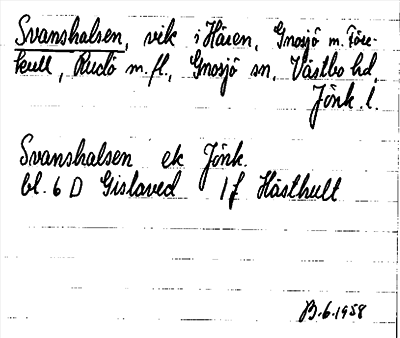 Svanshalsen, vik i Hären, Gnosjö m. Före-
kull, Rudö m.fl., Gnosjö sn, Västbo hd,
Jönk. l.
Svanshalsen ek Jönk.
bl. 6 D Gislaved 1f Hästhult
B.6.1958